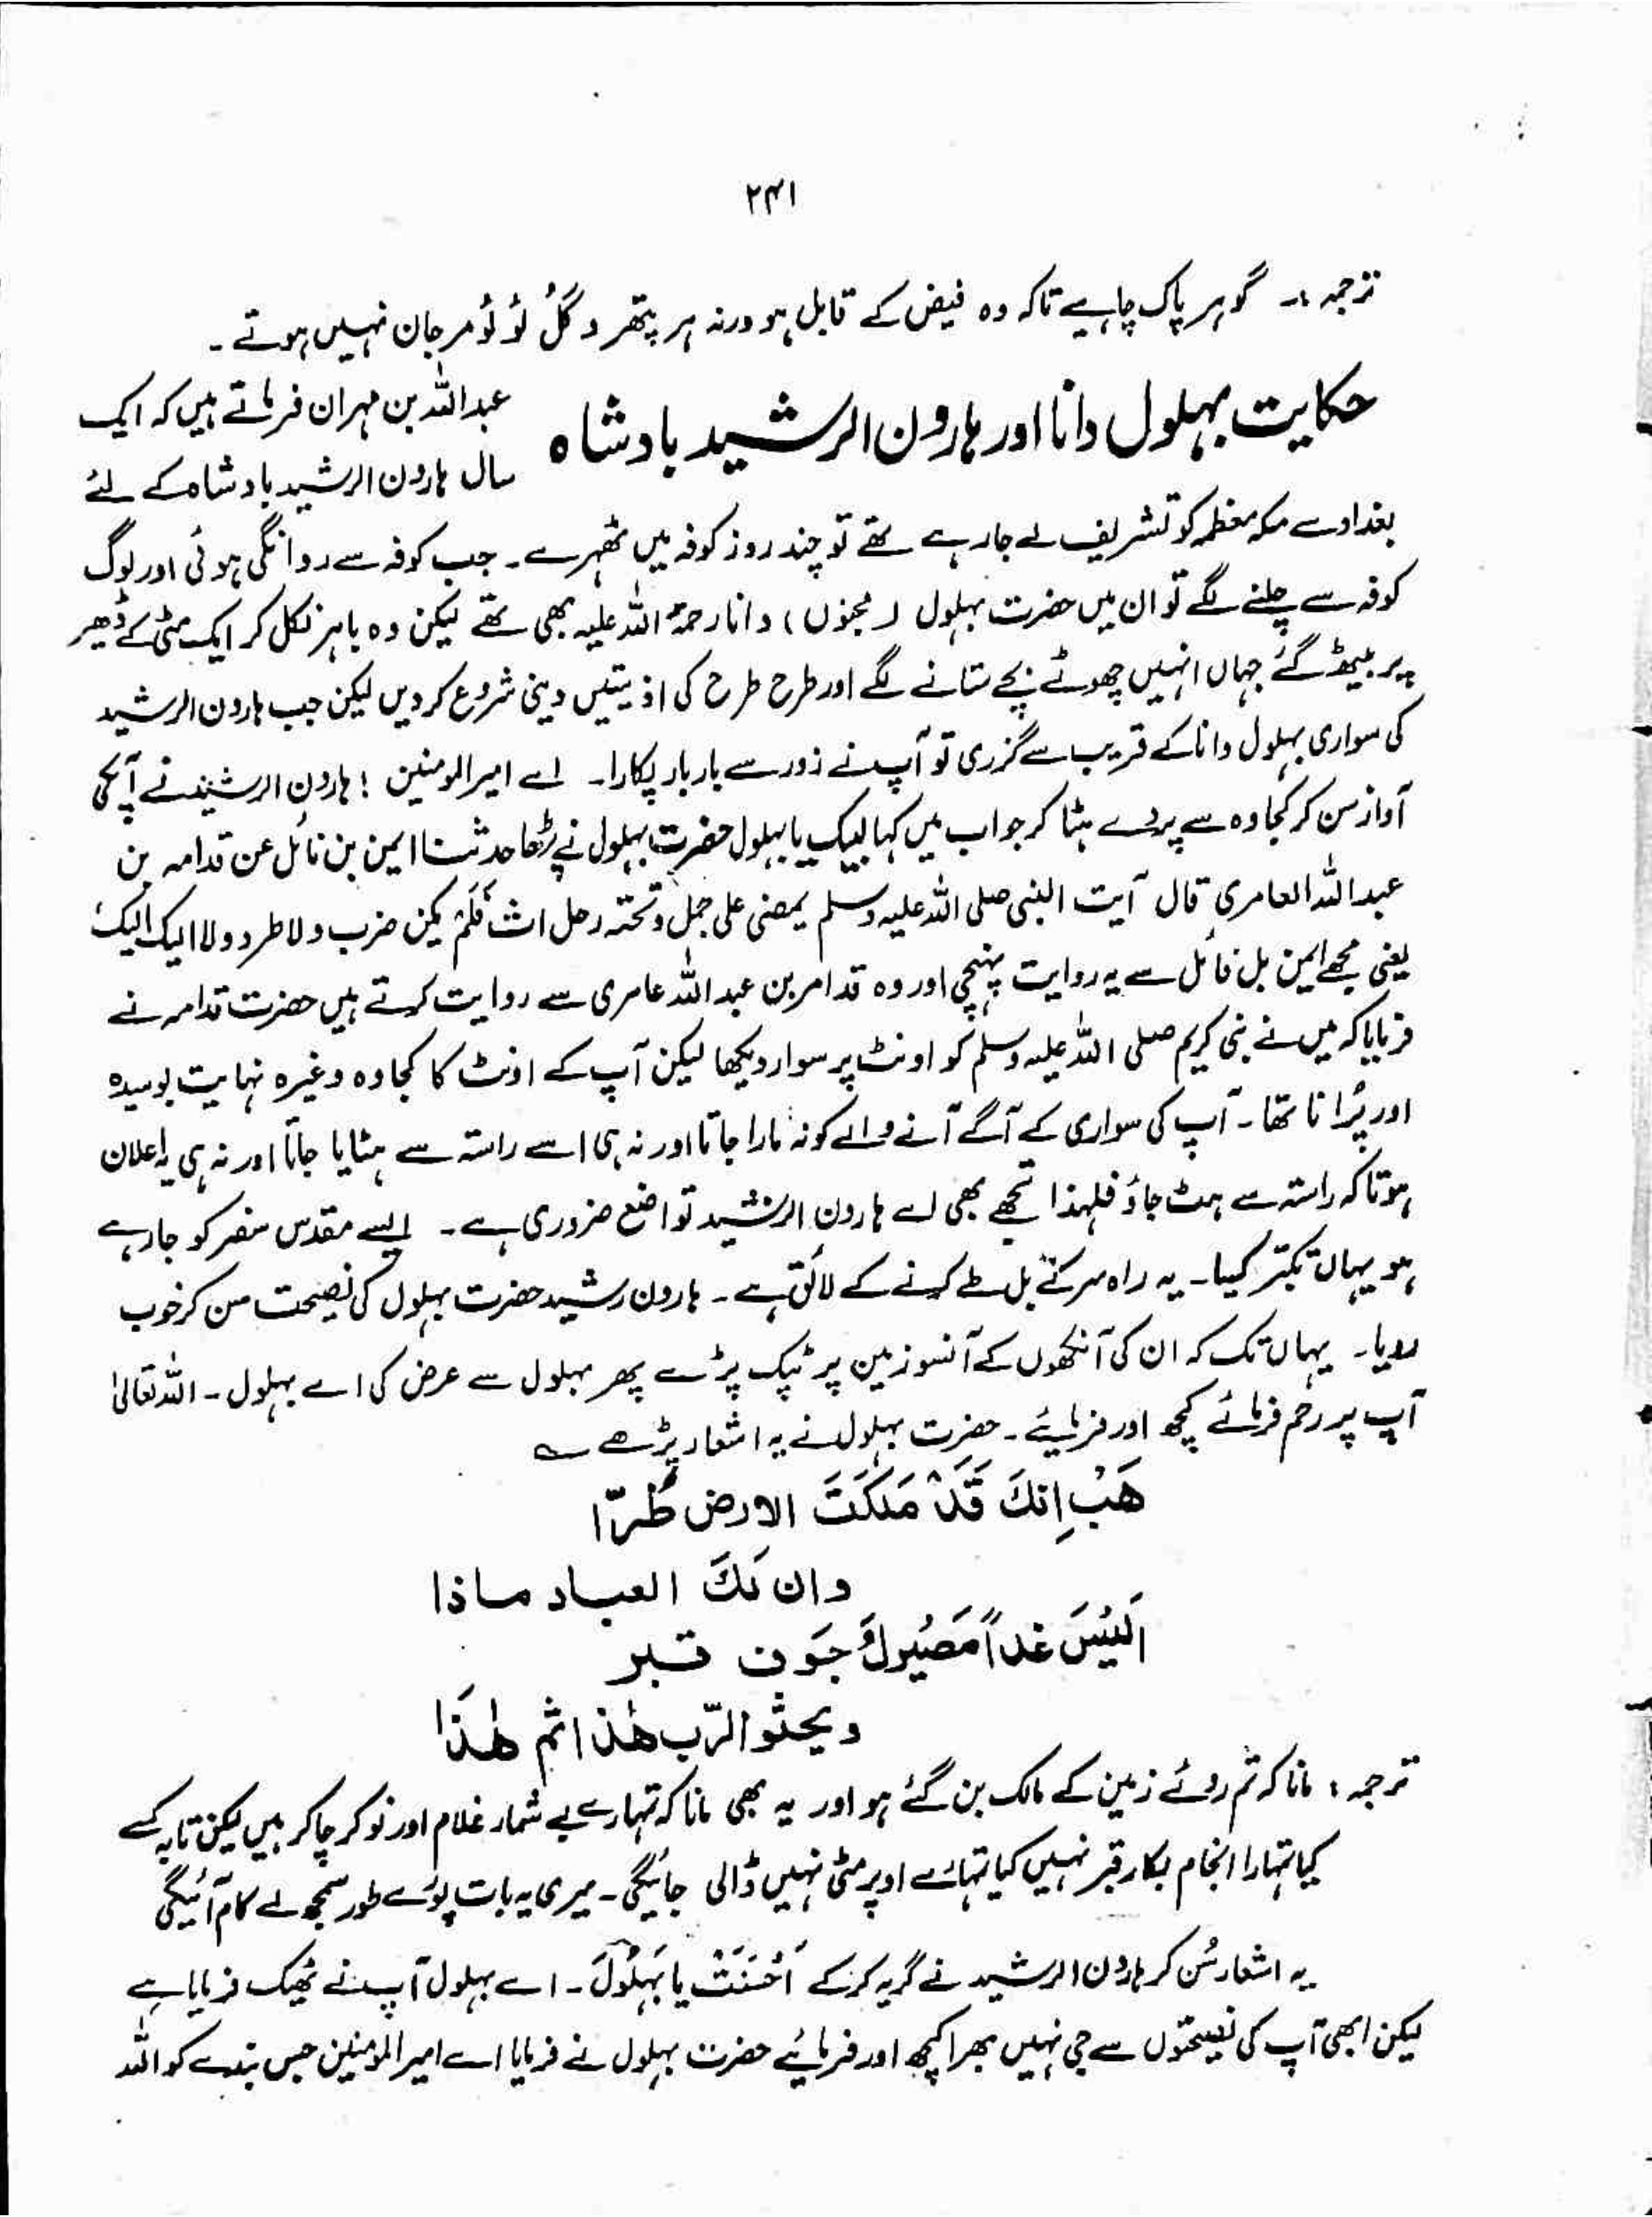 ۲۴۱
ترجمہ :۔ گوہر پاک چاہیے تاکہ وہ فیض کے قابل ہو ورنہ ہر پتھر و گِلُ لُؤلُؤ مرجان نہیں ہوتے ۔
حکایت بہلول دانا اور ہارون الرشید بادشاہ
عبداللہ بن مہران فرماتے ہیں کہ ایک
سال ہارون الرشید بادشاہ کے لئے
بغداد سے مکہ معظمہ کو تشریف لے جا رہے تھے تو چند روز کوفہ میں ٹھہرے ۔ جب کوفہ سے روانگی ہوئی اور لوگ
کوفہ سے چلنے لگے تو ان میں حضرت بہلول ( مجنوں ) دانا رحمۃ اللہ علیہ بھی تھے لیکن وہ باہر نکل کر ایک مٹی کے ڈھیر
پر بیٹھ گئے جہاں انہیں چھوٹے بچے ستانے لگے اور طرح طرح کی اذیتیں دینی شروع کر دیں لیکن جب ہارون الرشید
کی سواری بہلول دانا کے قریب سے گزری تو آپ نے زور سے بار بار پکارا ۔ اے امیر المومنین ! ہارون الرشید نے آپکی
آواز سن کر کجاوہ سے پردے ہٹا کر جواب میں کہا لبیک یا بہلول حضرت بہلول نے پڑھا حدثنا ایمن بن نائل عن قدامہ بن
عبد اللہ العامری قال آیت النبی صلی اللہ علیہ وسلم یمضی علی جمل و تحتہ رحل اث فَلَم یکن ضرب ولا طرد ولا الیک الیک
یعنی مجھے ایمن بل نائل سے یہ روایت پہنچی اور وہ قدامہ بن عبد اللہ عامری سے روایت کرتے ہیں حضرت قدامہ نے
فرمایا کہ میں نے نبی کریم صلی اللہ علیہ وسلم کو اونٹ پر سوار دیکھا لیکن آپ کے اونٹ کا کجاوہ وغیرہ نہایت بوسیدہ
اور پُرانا تھا ۔ آپ کی سواری کے آگے آنے والے کو نہ مارا جاتا اور نہ ہی اسے راستہ سے ہٹایا جاتا اور نہ ہی یہ اعلان
ہوتا کہ راستہ سے ہٹ جاؤ فلہذا تجھے بھی اے ہارون الرشید تواضع ضروری ہے ۔ ایسے مقدس سفر کو جا رہے
ہو یہاں تکبّر کیسا ۔ یہ راہ سر کے بل طے کرنے کے لائق ہے ۔ ہارون رشید حضرت بہلول کی نصیحت سن کر خوب
رویا ۔ یہاں تک کہ ان کی آنکھوں کے آنسو زمین پر ٹپک پڑے پھر بہلول سے عرض کی اے بہلول ۔ اللہ تعالیٰ
آپ پر رحم فرمائے کچھ اور فرمایئے ۔ حضرت بہلول نے یہ اشعار پڑھے ؎
هَبْ اِنكَ قَدْ مَلَكَتَ الارض طُرّا
وان لَكَ العباد ماذا
اَلَيْسَ غداً مَصِيُركَ جَوف قبر
ويحثو الرّب هٰذا ثم هٰذَا
ترجمہ : مانا کہ تم روئے زمین کے مالک بن گئے ہو اور یہ بھی مانا کہ تمہارے بے شمار غلام اور نوکر چاکر ہیں لیکن تابہ کے
کیا تمہارا انجام بکار قبر نہیں کیا تمہارے اوپر مٹی نہیں ڈالی جائیگی ۔ میری یہ بات پورے طور سمجھ لے کام آئیگی
یہ اشعار سُن کر ہارون الرشید نے گریہ کر کے اَحْسَنَتْ یا بَہْلُوُلَ ۔ اے بہلول آپ نے ٹھیک فرمایا ہے
لیکن ابھی آپ کی نصیحتوں سے جی نہیں بھرا کچھ اور فرمایئے حضرت بہلول نے فرمایا اے امیر المومنین جس بندے کو اللہ